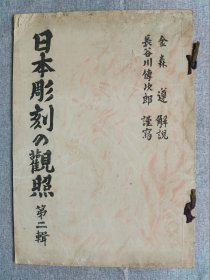 金森遵 解説
長谷川傳次郎 謹寫
日本彫刻の觀照 第二輯